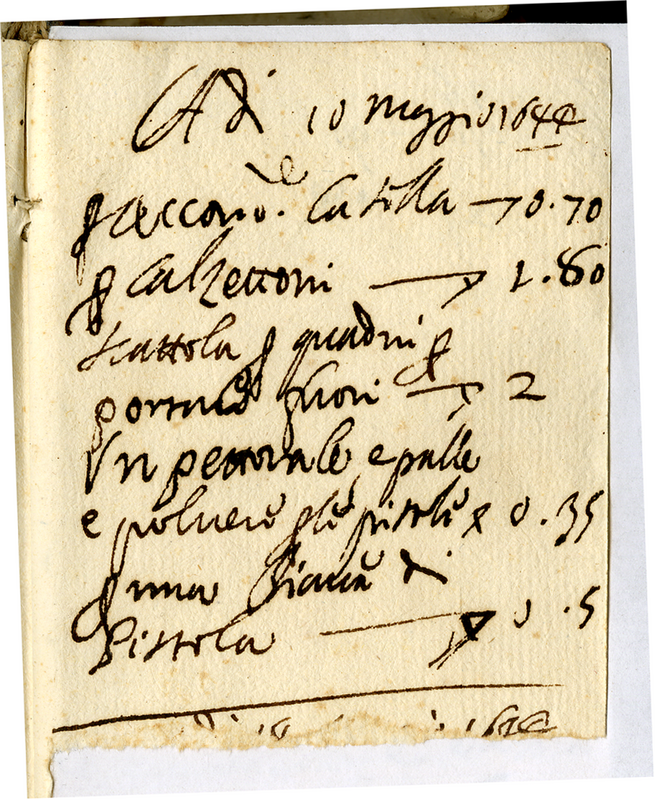 Adi 10 maggio 1644
p accom. la sella 0.70
p calzettoni 1.80
scattola p quadri p
portarli fuori 2
Un pettorale, e palle
e polvere p le pistole 0.35
p una chiave di
Pistola 0.5